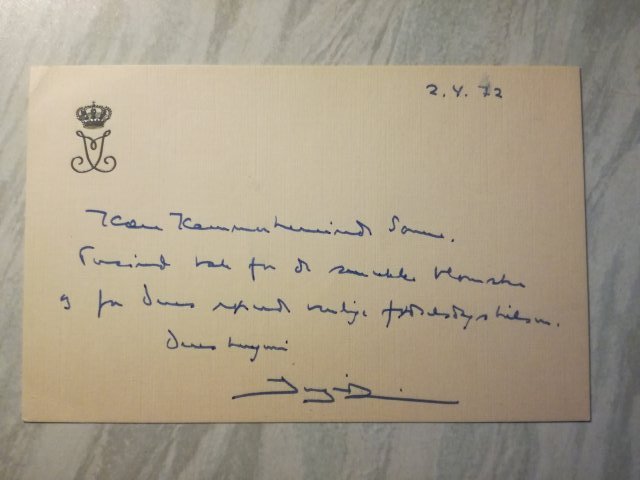 2.4.72
Kære Kammerherreinde Sonne.
Tusind tak for de smukke blomster
og for Deres venlige fødselsdagshilsen.
Deres hengivne
Ingrid